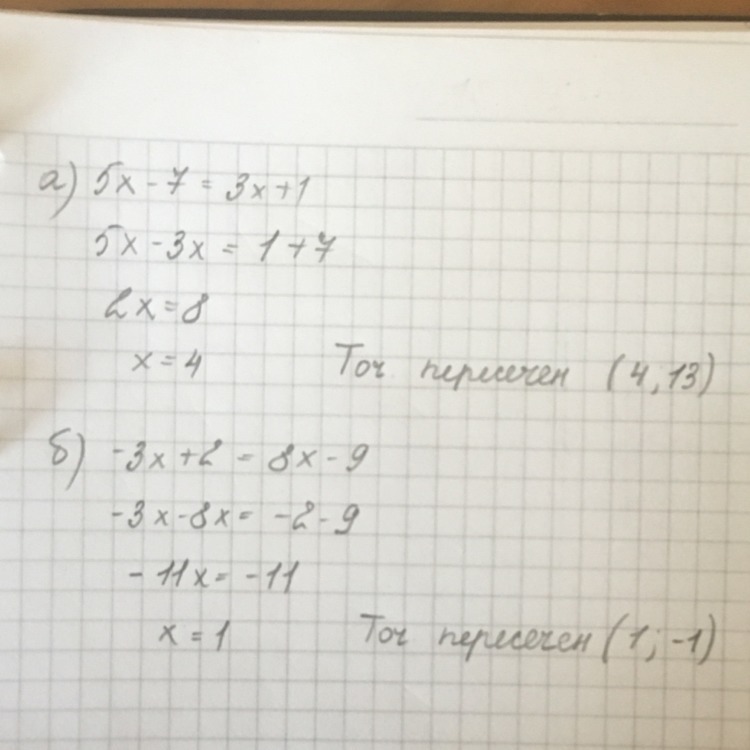 а) 5x - 7 = 3x + 1
5x - 3x = 1 + 7
2x = 8
x = 4 Точ пересечен (4, 13)
б) -3x + 2 = 8x - 9
-3x - 8x = -2 - 9
- 11x = -11
x = 1 Точ пересечен (1; -1)